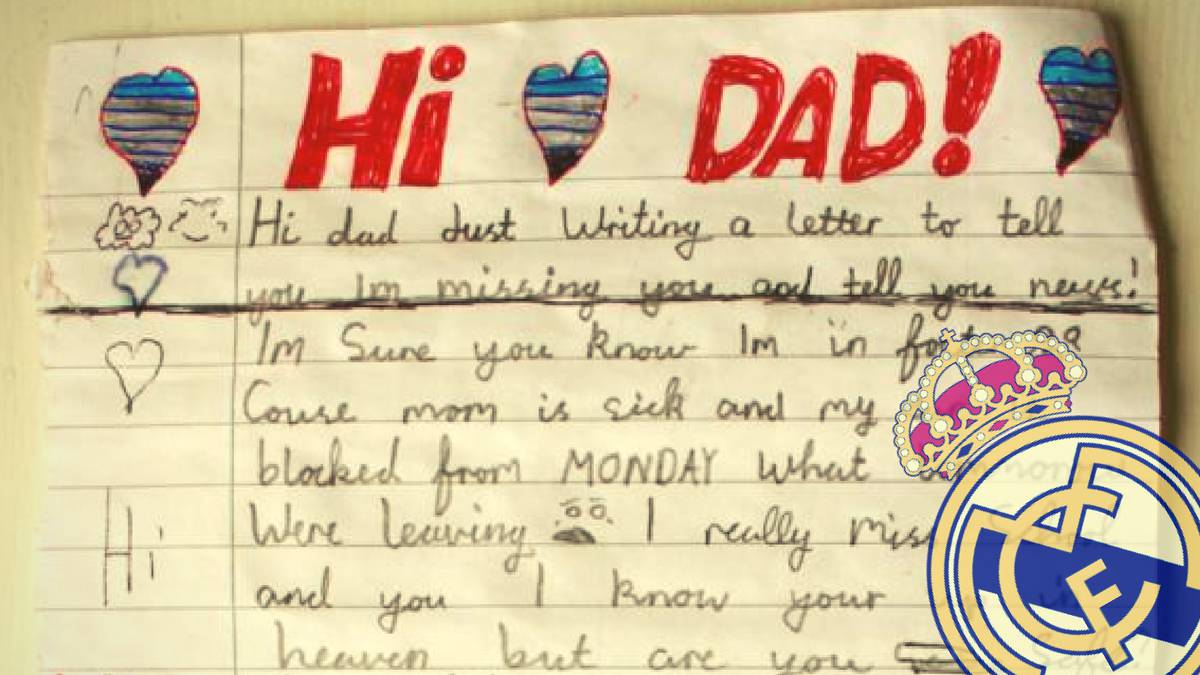 Hi DAD!
Hi dad Just Writing a letter to tell
you Im missing you and tell you news!
Im Sure you know Im in
Couse mom is sick and my
blocked from MONDAY what
Were leaving I really miss
and you I know your
heaven but are you
Hi